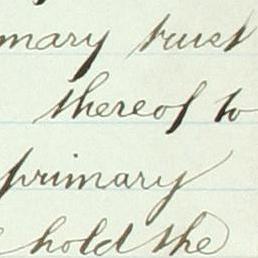 mary trust
thereof to
primary
hold the